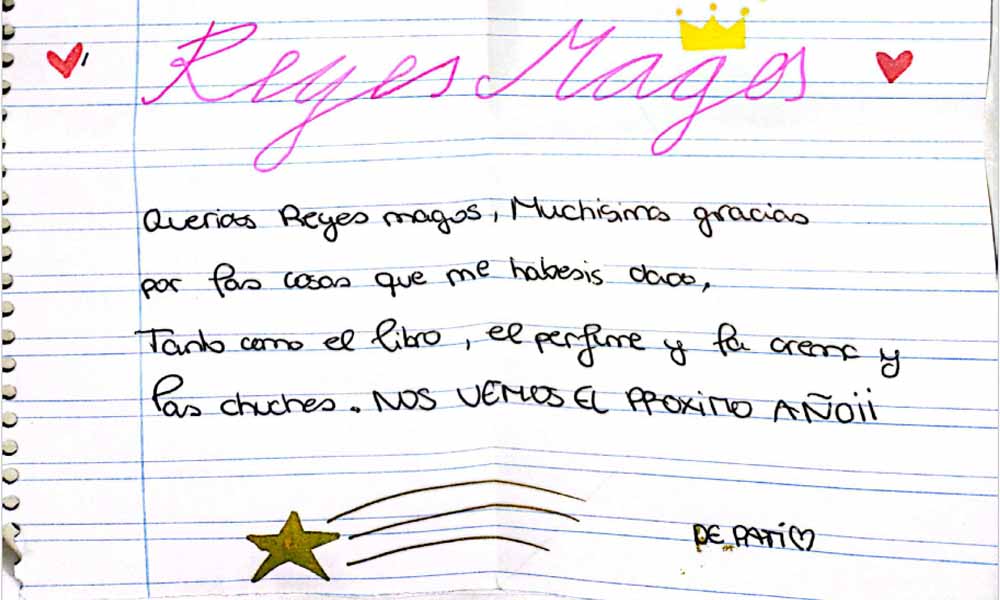 Reyes Magos
Querios Reyes magos, Muchisimas gracias
por las cosas que me habesis dado,
Tanto como el libro, el perfume y la crema y
las chuches. NOS VEMOS EL PROXIMO AÑO¡¡
DE PATI♡